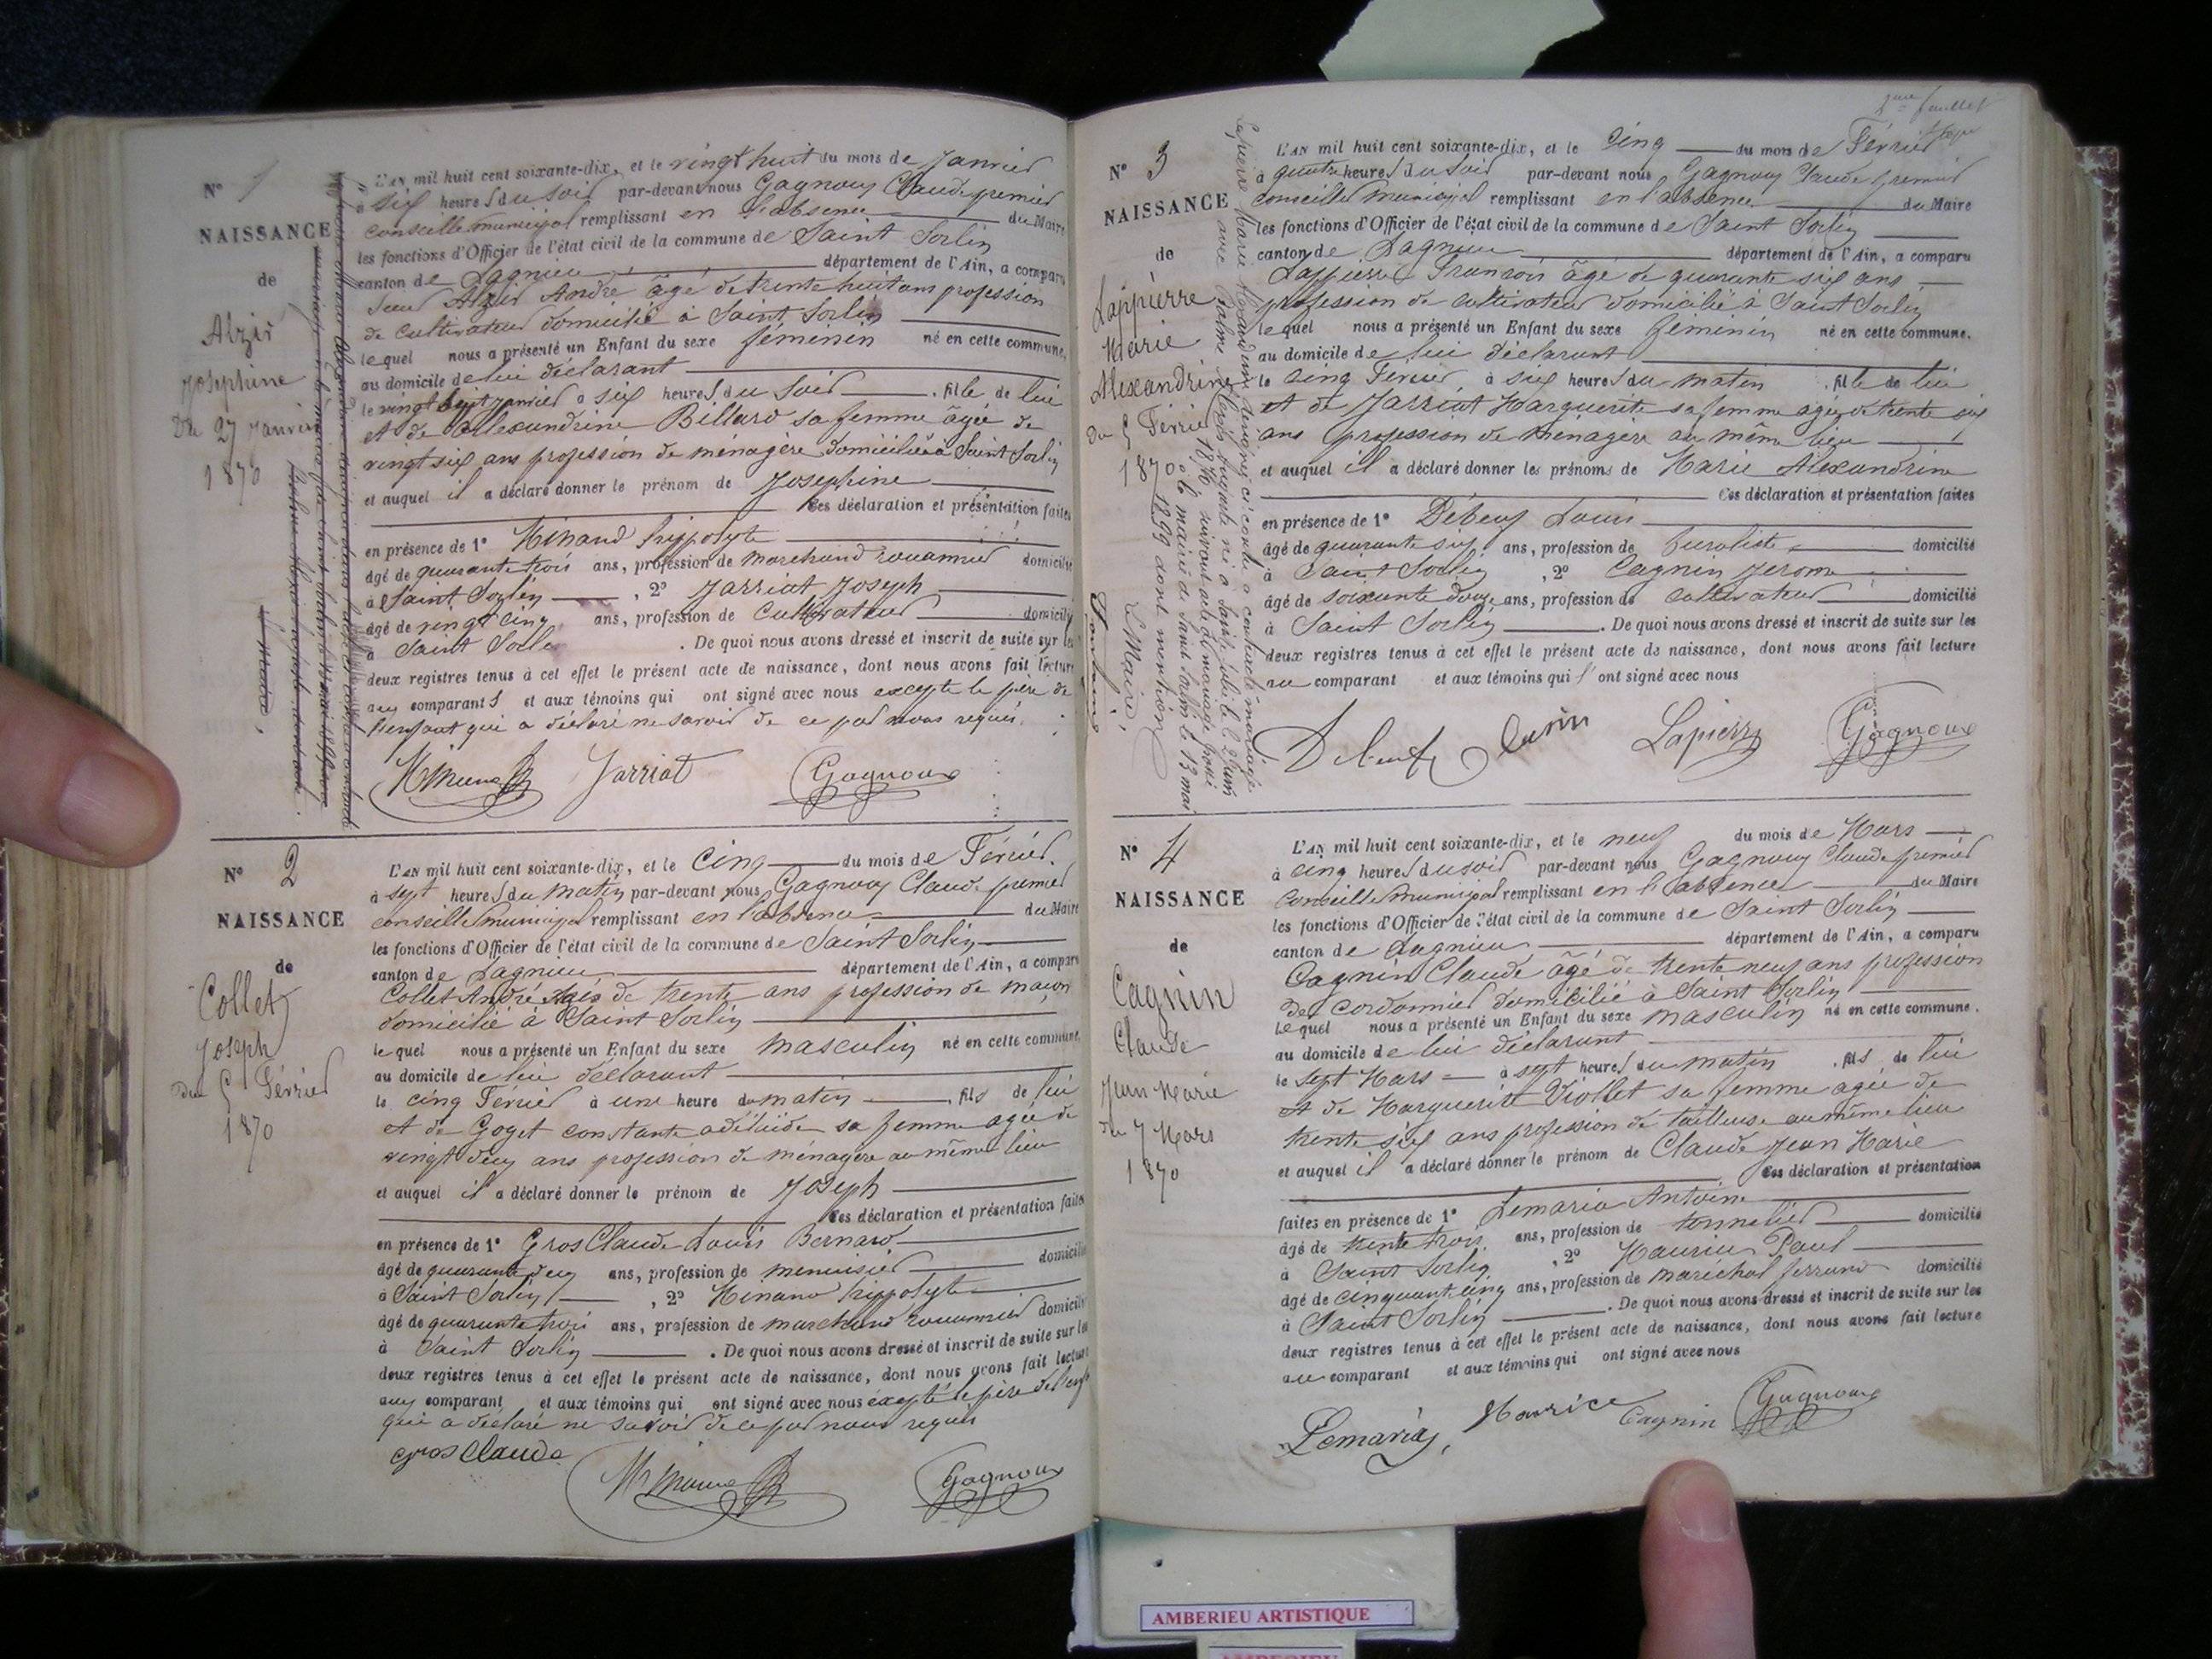 N° 1
NAISSANCE
de
Alzir
Josephine
Du 27 Janvier
1870
L'AN mil huit cent soixante-dix, et le vingt huit du mois de Janvier
à six heures du soir par-devant nous Gagnoux Claude premier
conseille municipal remplissant en l'absence du Maire
les fonctions d'Officier de l'état civil de la commune de Saint Sorlin
canton de Lagnieu département de l'Ain, a comparu
Alzir André âgé de trente huit ans profession
de cultivateur domicilié à Saint Sorlin
lequel nous a présenté un Enfant du sexe féminin né en cette commune,
au domicile de lui déclarant
le vingt sept Janvier à six heures du soir . fille de lui
et de Alexandrine Billard sa femme âgée de
vingt six ans profession de ménagère domiciliée à Saint Sorlin
et auquel il a déclaré donner le prénom de Josephine
Ces déclaration et présentation faites
en présence de 1° Minand hippolyte
âgé de quarante trois ans, profession de marchand rouannier domicilié
à Saint Sorlin , 2° Jarriat Joseph
âgé de vingt cinq ans, profession de cultivateur domicilié
à Saint Sorlin . De quoi nous avons dressé et inscrit de suite sur les
deux registres tenus à cet effet le présent acte de naissance, dont nous avons fait lecture
aux comparants et aux témoins qui ont signé avec nous excepté le père de
l'enfant qui a déclaré ne savoir de ce par nous requis.
Jarriat Gagnoux
N° 2
NAISSANCE
de
Collet
Joseph
du 5 Février
1870
L'AN mil huit cent soixante-dix, et le Cinq du mois de Février.
à sept heures du matin par-devant nous Gagnoux Claude premier
conseille municipal remplissant en l'absence du Maire
les fonctions d'Officier de l'état civil de la commune de Saint Sorlin
canton de Lagnieu département de l'Ain, a comparu
Collet André âgé de trente ans profession de maçon
domicilié à Saint Sorlin
lequel nous a présenté un Enfant du sexe masculin né en cette commune,
au domicile de lui déclarant
le cinq Février à une heure du matin . fils de lui
et de Goyet constante adélaïde sa femme agée de
vingt deux ans profession de ménagère au même lieu
et auquel il a déclaré donner le prénom de Joseph
Ces déclaration et présentation faites
en présence de 1° GrosClaude Louis Bernard
âgé de quarante deux ans, profession de menuisier domicilié
à Saint Sorlin , 2° Minand hippolyte
âgé de quarante trois ans, profession de marchand rouannier domicilié
à Saint Sorlin . De quoi nous avons dressé et inscrit de suite sur les
deux registres tenus à cet effet le présent acte de naissance, dont nous avons fait lecture
aux comparant et aux témoins qui ont signé avec nous excepté le père de
qui a déclaré ne savoir de ce par nous requis
gros Claude
Gagnoux
2me feuillet
N° 3
NAISSANCE
de
Lappierre
Marie
Alexandrine
du 5 Février
1870
Lapierre Marie Alexandrine
1899 dont mention
Le Maire,
L'AN mil huit cent soixante-dix, et le Cinq du mois de Février
à quatre heures du soir par-devant nous Gagnoux Claude premier
conseille municipal remplissant en l'absence du Maire
les fonctions d'Officier de l'état civil de la commune de Saint Sorlin
canton de Lagnieu département de l'Ain, a comparu
Lappierre François âgé de quarante six ans
profession de cultivateur domicilié à Saint Sorlin
lequel nous a présenté un Enfant du sexe féminin né en cette commune.
au domicile de lui déclarant
le Cinq Février, à six heures du matin . fille de lui
et de Jarriat Marguerite sa femme agée de trente six
ans profession de ménagère au même lieu
et auquel il a déclaré donner les prénoms de Marie Alexandrine
Ces déclaration et présentation faites
en présence de 1° Débeuf Louis
âgé de quarante six ans, profession de buraliste domicilié
à Saint Sorlin , 2° Cagnin Jerome
âgé de soixante douze ans, profession de cultivateur domicilié
à Saint Sorlin . De quoi nous avons dressé et inscrit de suite sur les
deux registres tenus à cet effet le présent acte de naissance, dont nous avons fait lecture
au comparant et aux témoins qui l'ont signé avec nous
Lapierre Gagnoux
N° 4
NAISSANCE
de
Cagnin
Claude
Jean Marie
du 7 Mars
1870
L'AN mil huit cent soixante-dix, et le neuf du mois de Mars
à cinq heures du soir par-devant nous Gagnoux Claude premier
Conseille municipal remplissant en l'absence du Maire
les fonctions d'Officier de l'état civil de la commune de Saint Sorlin
canton de Lagnieu département de l'Ain, a comparu
Cagnin Claude âgé de trente neuf ans profession
de cordonnier domicilié à Saint Sorlin
lequel nous a présenté un Enfant du sexe masculin né en cette commune.
au domicile de lui déclarant
le sept Mars à sept heures du matin . fils de lui
et de Marguerite Viollet sa femme agée de
trente six ans profession de tailleuse au même lieu
et auquel il a déclaré donner le prénom de Claude Jean Marie
Ces déclaration et présentation
faites en présence de 1° Lemaria Antoine
âgé de trente trois ans, profession de tonnelier domicilié
à Saint Sorlin , 2° Maurice Paul
âgé de cinquante cinq ans, profession de maréchal ferrand domicilié
à Saint Sorlin . De quoi nous avons dressé et inscrit de suite sur les
deux registres tenus à cet effet le présent acte de naissance, dont nous avons fait lecture
au comparant et aux témoins qui ont signé avec nous
Lemaria Maurice Cagnin Gagnoux
AMBERIEU ARTISTIQUE